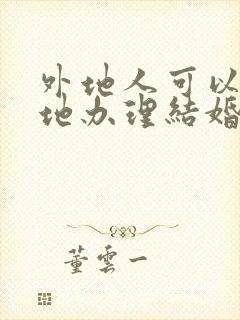 外地人可以
地办理結婚
董雲一